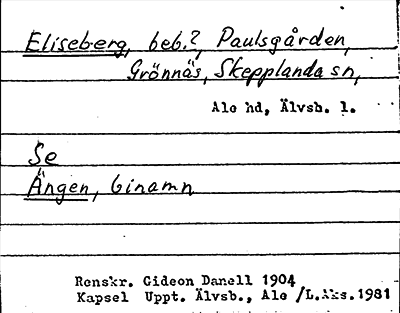 Eliseberg, beb.?, Paulsgården,
Grönnäs, Skepplanda sn,
Ale hd, Älvsb. l.
Se
Ängen, binamn
Renskr. Gideon Danell 1904
Kapsel Uppt. Älvsb., Ale /L.Aks.1981